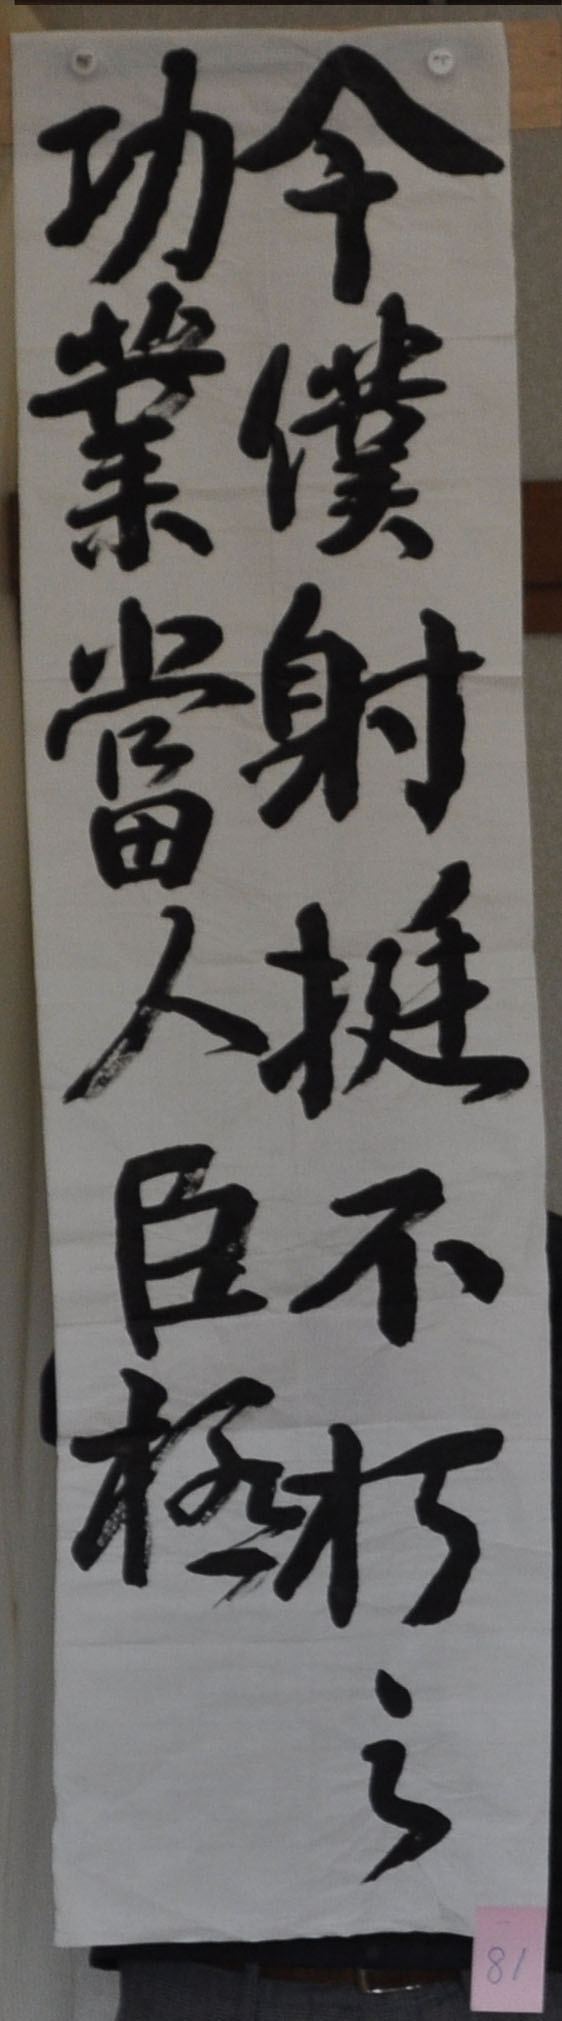 今僕射挺不朽之
功業當人臣極
81